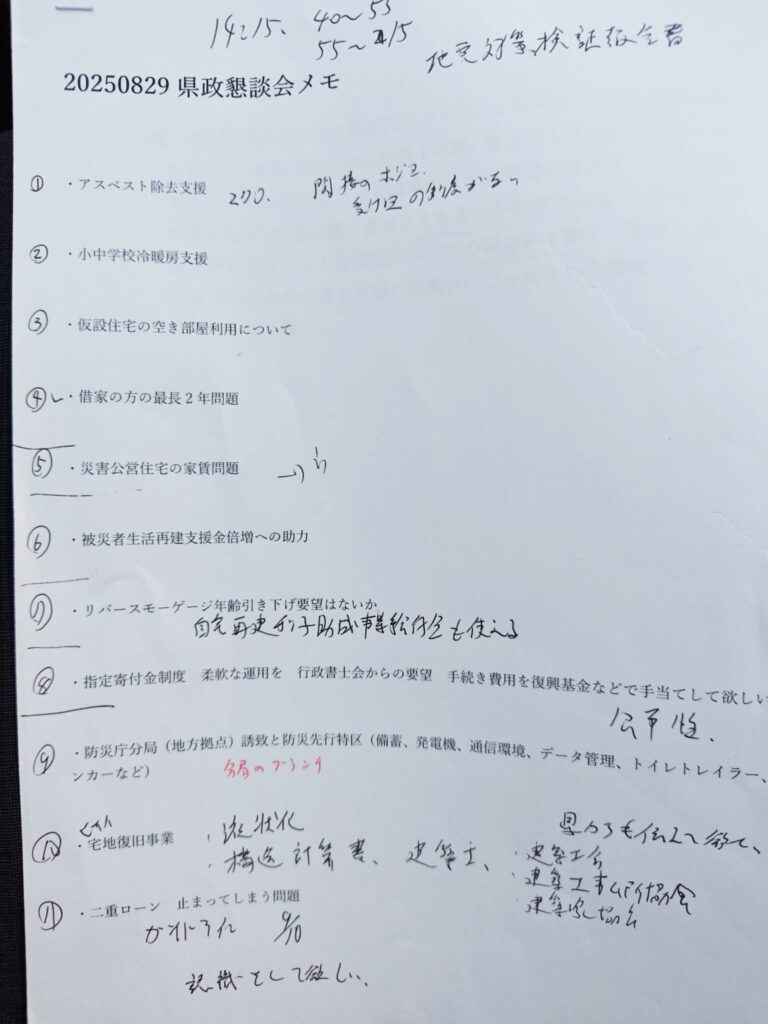 14:15、40~55
55~ 15
地震対策検証報告書
20250829 県政懇談会メモ
① ・アスベスト除去支援 270. 間接の
の制度がある。
② ・小中学校冷暖房支援
③ ・仮設住宅の空き部屋利用について
④ ・借家の方の最長2年問題
⑤ ・災害公営住宅の家賃問題
⑥ ・被災者生活再建支援金倍増への助力
⑦ ・リバースモーゲージ年齢引き下げ要望はないか
自宅再建利子助成事業給付金も使える
⑧ ・指定寄付金制度 柔軟な運用を 行政書士会からの要望 手続き費用を復興基金などで手当てして欲しい
公平性、
⑨ ・防災庁分局（地方拠点）誘致と防災先行特区（備蓄、発電機、通信環境、データ管理、トイレトレイラー、
ンカーなど）
分局のブランチ
⑩ ・宅地復旧事業 ・液状化
県からも伝えて欲しい、
・構造計算書、建築士、
・建築士会
・建築士事務所協会
・建築家協会
⑪ ・二重ローン 止まってしまう問題
ガイドライン 9/10
認識をして欲しい、